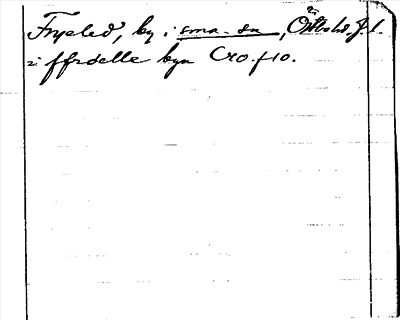 Fryeled, by i sma. sn, Östbo hd. J. l.
: ffrdelle byn Cro. f 10.